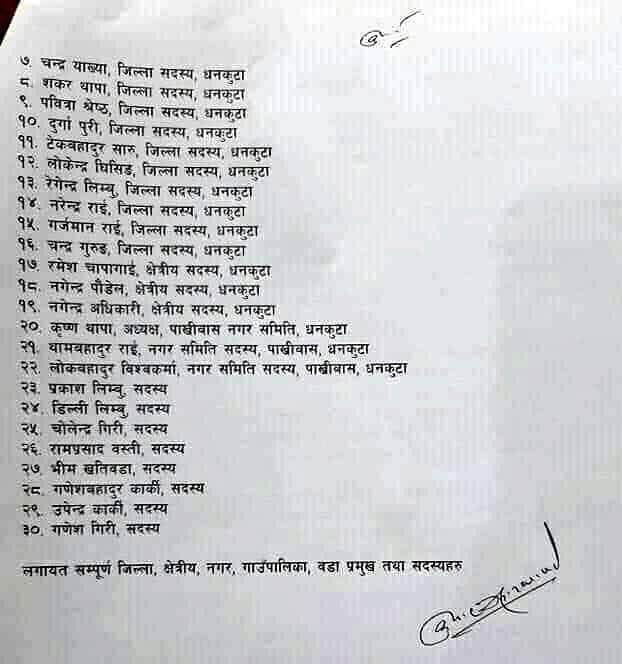 ७. चन्द्र याख्या, जिल्ला सदस्य, धनकुटा
८. शंकर थापा, जिल्ला सदस्य, धनकुटा
९. पवित्रा श्रेष्ठ, जिल्ला सदस्य, धनकुटा
१०. दुर्गा पुरी, जिल्ला सदस्य, धनकुटा
११. टेकबहादुर सारु, जिल्ला सदस्य, धनकुटा
१२. लोकेन्द्र घिसिङ, जिल्ला सदस्य, धनकुटा
१३. रेगेन्द्र लिम्बु, जिल्ला सदस्य, धनकुटा
१४. नरेन्द्र राई, जिल्ला सदस्य, धनकुटा
१५. गर्जमान राई, जिल्ला सदस्य, धनकुटा
१६. चन्द्र गुरुङ, जिल्ला सदस्य, धनकुटा
१७. रमेश चापागाई, क्षेत्रीय सदस्य, धनकुटा
१८. नगेन्द्र पौडेल, क्षेत्रीय सदस्य, धनकुटा
१९. नगेन्द्र अधिकारी, क्षेत्रीय सदस्य, धनकुटा
२०. कृष्ण थापा, अध्यक्ष, पाखीबास नगर समिति, धनकुटा
२१. बामबहादुर राई, नगर समिति सदस्य, पाखीबास, धनकुटा
२२. लोकबहादुर विश्वकर्मा, नगर समिति सदस्य, पाखीबास, धनकुटा
२३. प्रकाश लिम्बु, सदस्य
२४. डिल्ली लिम्बु, सदस्य
२५. चोलेन्द्र गिरी, सदस्य
२६. रामप्रसाद वस्ती, सदस्य
२७. भीम खतिवडा, सदस्य
२८. गणेशबहादुर कार्की, सदस्य
२९. उपेन्द्र कार्की, सदस्य
३०. गणेश गिरी, सदस्य
लगायत सम्पूर्ण जिल्ला, क्षेत्रीय, नगर, गाउँपालिका, वडा प्रमुख तथा सदस्यहरु